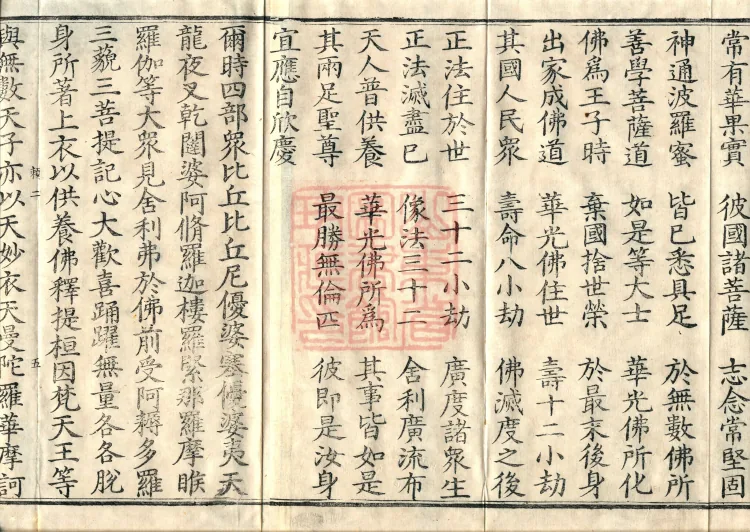 常有華果實　彼國諸菩薩　志念常堅固
神通波羅蜜　皆已悉具足　於無數佛所
善學菩薩道　如是等大士　華光佛所化
佛爲王子時　棄國捨世榮　於最末後身
出家成佛道　華光佛住世　壽十二小劫
其國人民衆　壽命八小劫　佛滅度之後
正法住於世　三十二小劫　廣度諸衆生
正法滅盡已　像法三十二　舍利廣流布
天人普供養　華光佛所爲　其事皆如是
其兩足聖尊　最勝無倫匹　彼即是汝身
宜應自欣慶
爾時四部衆比丘比丘尼優婆塞優婆夷天
龍夜叉乾闥婆阿脩羅迦樓羅緊那羅摩睺
羅伽等大衆見舍利弗於佛前受阿耨多羅
三藐三菩提記心大歡喜踊躍無量各各脫
身所著上衣以供養佛釋提桓因梵天王等
二　五
與無數天子亦以天妙衣天曼陀羅華摩訶